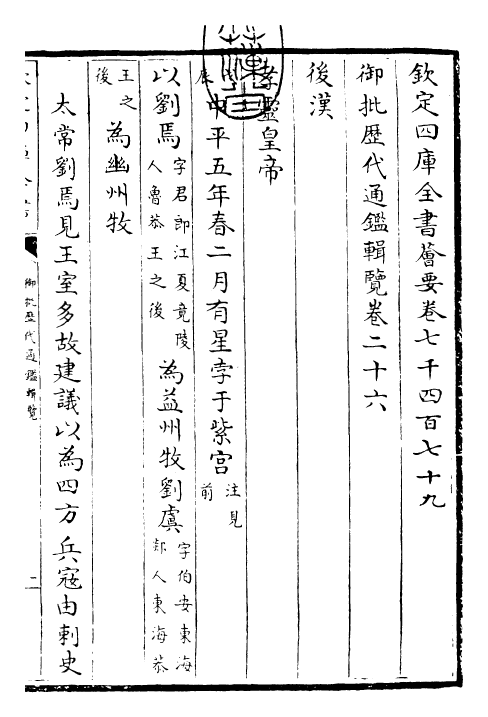 欽定四庫全書薈要卷七千四百七十九
御批歷代通鑑輯覽卷二十六
後漢
孝靈皇帝
中平五年春二月有星孛于紫宮注見前
以劉焉字君郎江夏竟陵人魯恭王之後為益州牧劉虞字伯安東海郯人東海恭
王之後為幽州牧
太常劉焉見王室多故建議以為四方兵寇由刺史
御批歷代通鑑輯覽
二